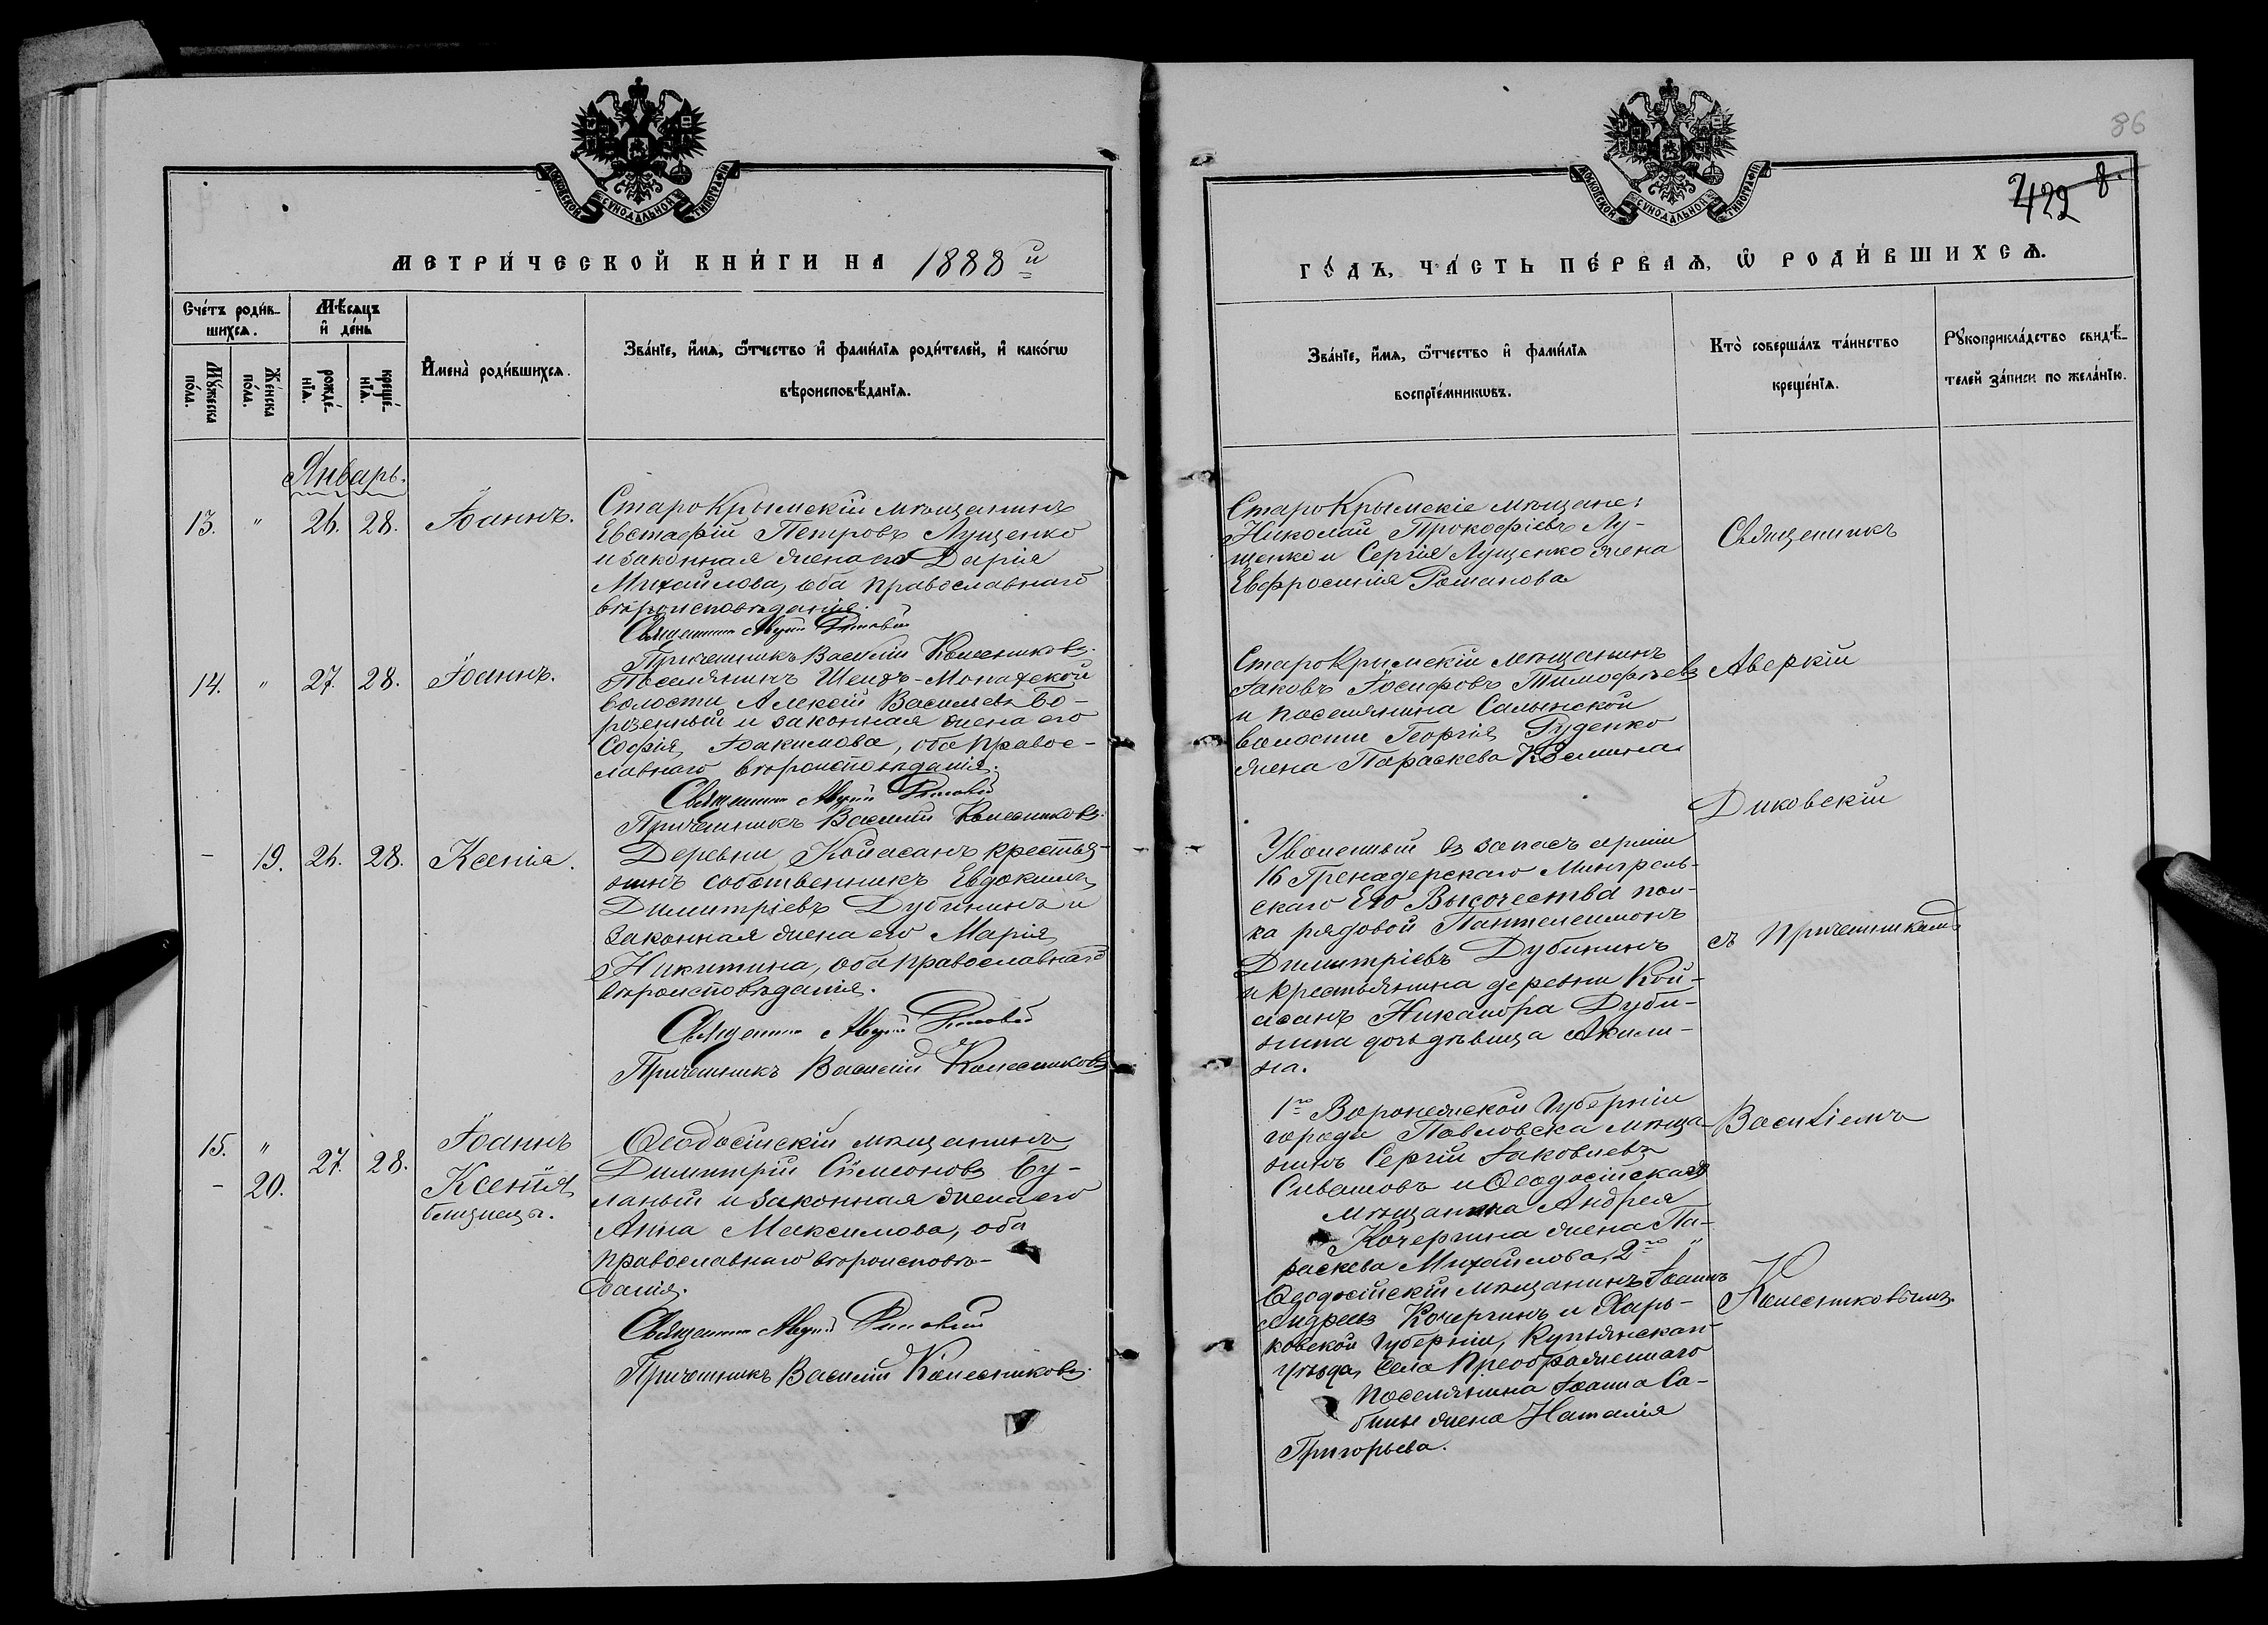 МОСКОВСКОЙ СѴНОДАЛЬНОЙ ТИПОГРАФІИ
МЕТРИ́ЧЕСКОЙ КНИ́ГИ НА 1888 й
Сче́тъ роди́в-
шихсѧ.
Мѣ́сѧцъ
и҆ де́нь
Мꙋ́жеска
по́ла.
Же́нска
по́ла.
рожде́-
нїѧ.
креще́-
нїѧ.
И҆мена̀ роди́вшихсѧ.
Зва́нїе, и҆́мѧ, ѻ҆́тчество и҆ фами́лїѧ роди́телей, и҆ како́гѡ
вѣроисповѣ́данїѧ.
Январь.
13. " 26. 28. Іоаннъ.
СтароКрымскій мѣщанинъ
Евстафій Петровъ Лущенко
и законная жена его Дарія
Михайлова, оба православнаго
вѣроисповѣданія.
Священникъ Аверкій Диковскій
Причетникъ Василій Колесниковъ.
14. " 27. 28. Іоаннъ.
Поселянинъ Шейхъ-Монахской
волости Алексій Васильевъ Бо-
розенный и законная жена его
Софія Іоакимова, оба правос-
лавнаго вѣроисповѣданія.
Священникъ Аверкій Диковскій
Причетникъ Василій Колесниковъ.
- 19. 26. 28. Ксенія.
Деревни Койасанъ крестья-
нинъ собственникъ Евдокимъ
Димитріевъ Дубининъ и
законная жена его Марія
Никитина, оба православнаго
вѣроисповѣданія.
Священникъ Аверкій Диковскій
Причетникъ Василій Колесниковъ
15. " 27. 28. Іоаннъ
- 20. Ксенія
близнецы.
Ѳеодосійскій мѣщанинъ
Димитрій Сѵмеоновъ Бу-
ланый и законная жена его
Анна Максимова, оба
православнаго вѣроисповѣ-
данія.
Священникъ Аверкій Диковскій
Причетникъ Василій Колесниковъ.
86
МОСКОВСКОЙ СѴНОДАЛЬНОЙ ТИПОГРАФІИ
422 8.
ГО́ДЪ, ЧА́СТЬ ПЕ́РВАѦ, Ѡ҆ РОДИ́ВШИХСѦ.
Зва́нїе, и҆́мѧ, ѻ҆́тчество и҆ фами́лїѧ
воспрїе́мникѡвъ.
Кто̀ соверша́лъ та́инство
креще́нїѧ.
Рꙋкоприкла́дство свидѣ́-
телей за́писи по жела́нїю.
СтароКрымскіе мѣщане:
Николай Прокофіевъ Лу-
щенко и Сергія Лущенко жена
Евфросинія Романова
СтароКрымскій мѣщанинъ
Іаковъ Іосифовъ Тимофѣевъ
и поселянина Салынской
волости Георгія Руденко
жена Параскева Козмина.
Уволенный въ запасъ арміи
16 Гренадерскаго Мингрель-
скаго Его Высочества пол-
ка рядовой Пантелеимонъ
Димитріевъ Дубининъ
и крестьянина деревни Кой-
асанъ Никанора Дуби-
нина дочь дѣвица Акили-
на.
1го Воронежской губерніи
города Павловска мѣща-
нинъ Сергій Іаковлевъ
Сивашовъ и Ѳеодосійскаго
мѣщанина Андрея
Кочергина жена Па-
раскева Михайлова, 2го
Ѳеодосійскій мѣщанинъ Іоаннъ
Андреевъ Кочергинъ и Харь-
ковской губерніи, Купянскаго
уѣзда, села Преображеннаго
поселянина Іоанна Са-
бины жена Наталія
Григорьева.
Священникъ
Аверкій
Диковскій
съ причетникомъ
Василіемъ
Колесниковымъ.